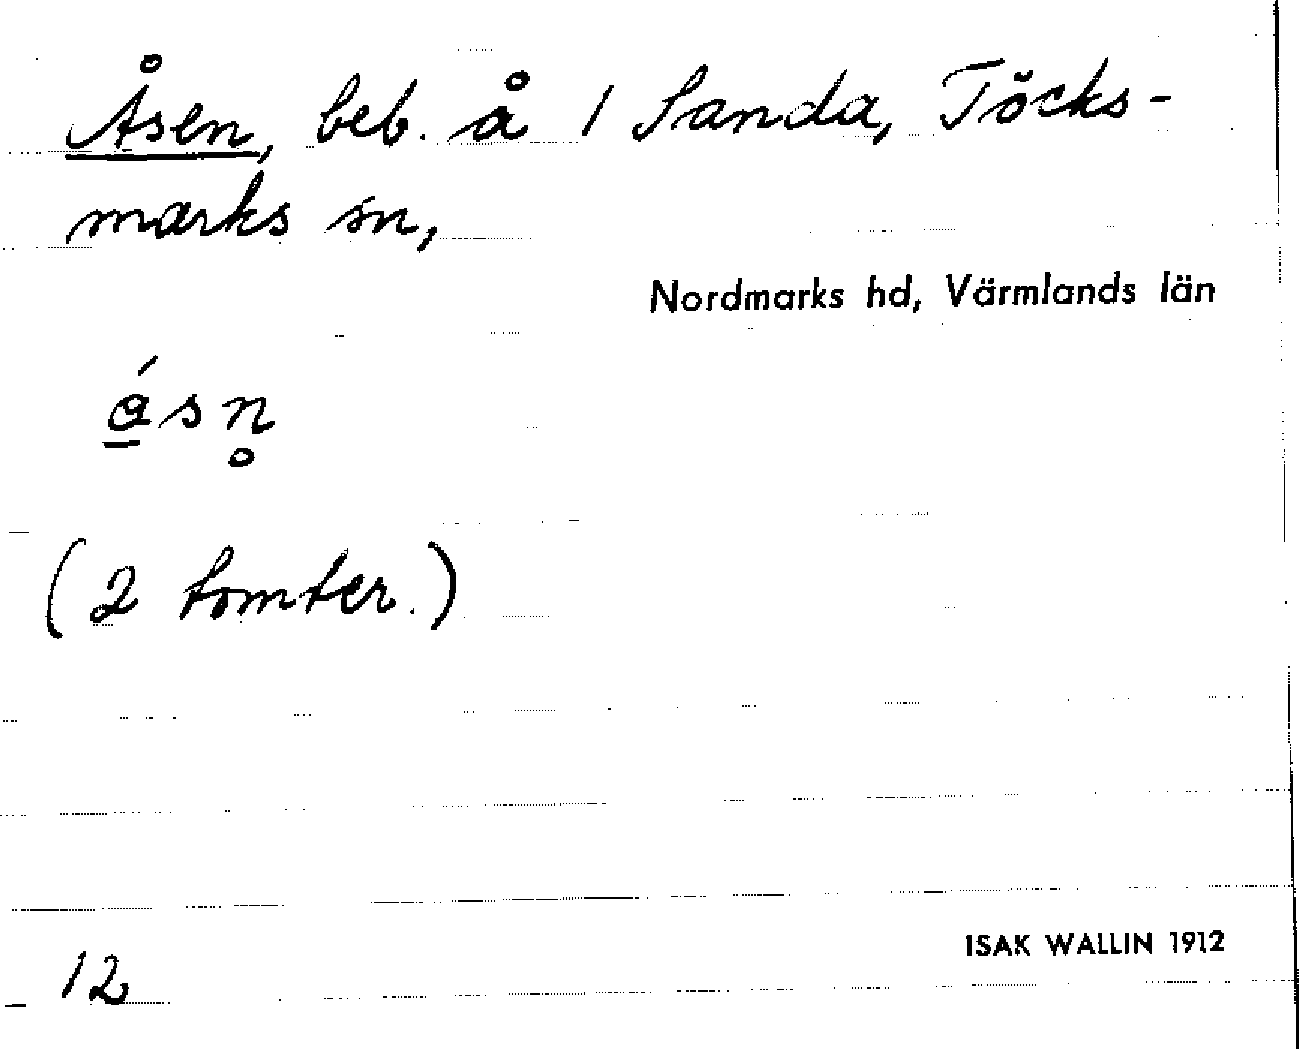 Åsen, beb. å 1 Sanda, Töcks-
marks sn,
Nordmarks hd, Värmlands län
ásn̥
(2 tomter.)
ISAK WALLIN 1912
12